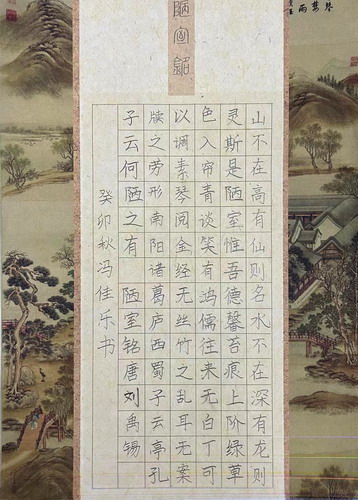 陋室銘
山不在高有仙则名水不在深有龙则
灵斯是陋室惟吾德馨苔痕上阶绿草
色入帘青谈笑有鸿儒往来无白丁可
以调素琴阅金经无丝竹之乱耳无案
牍之劳形南阳诸葛庐西蜀子云亭孔
子云何陋之有 陋室铭唐刘禹锡
癸卯秋冯佳乐书